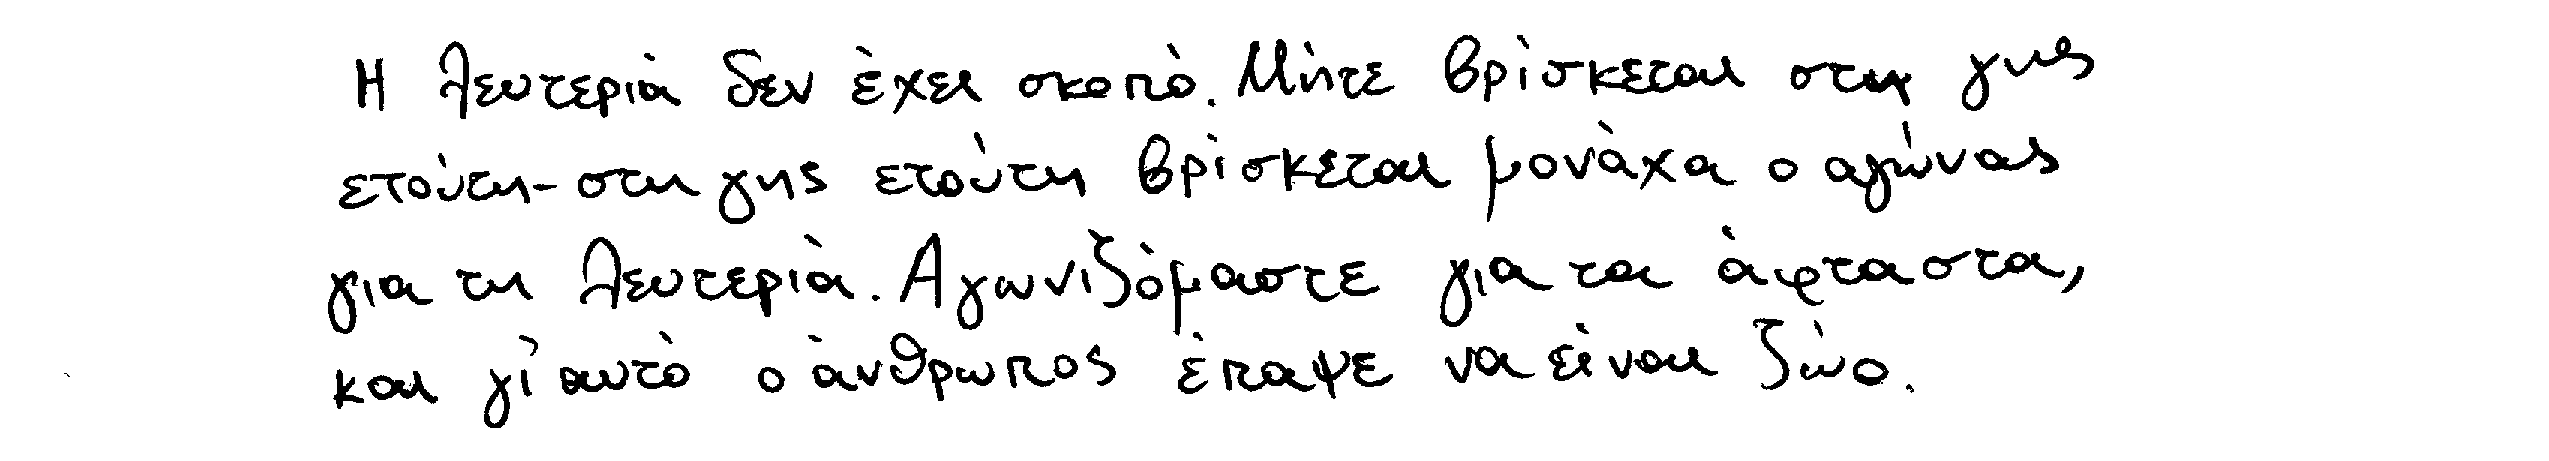 Η λευτεριά δεν έχει σκοπό. Μήτε βρίσκεται στη γης
ετούτη-στη γης ετούτη βρίσκεται μονάχα ο αγώνας
για τη λευτεριά. Αγωνιζόμαστε για τα άφταστα,
και γι' αυτό ο άνθρωπος έπαψε να είναι ζώο.